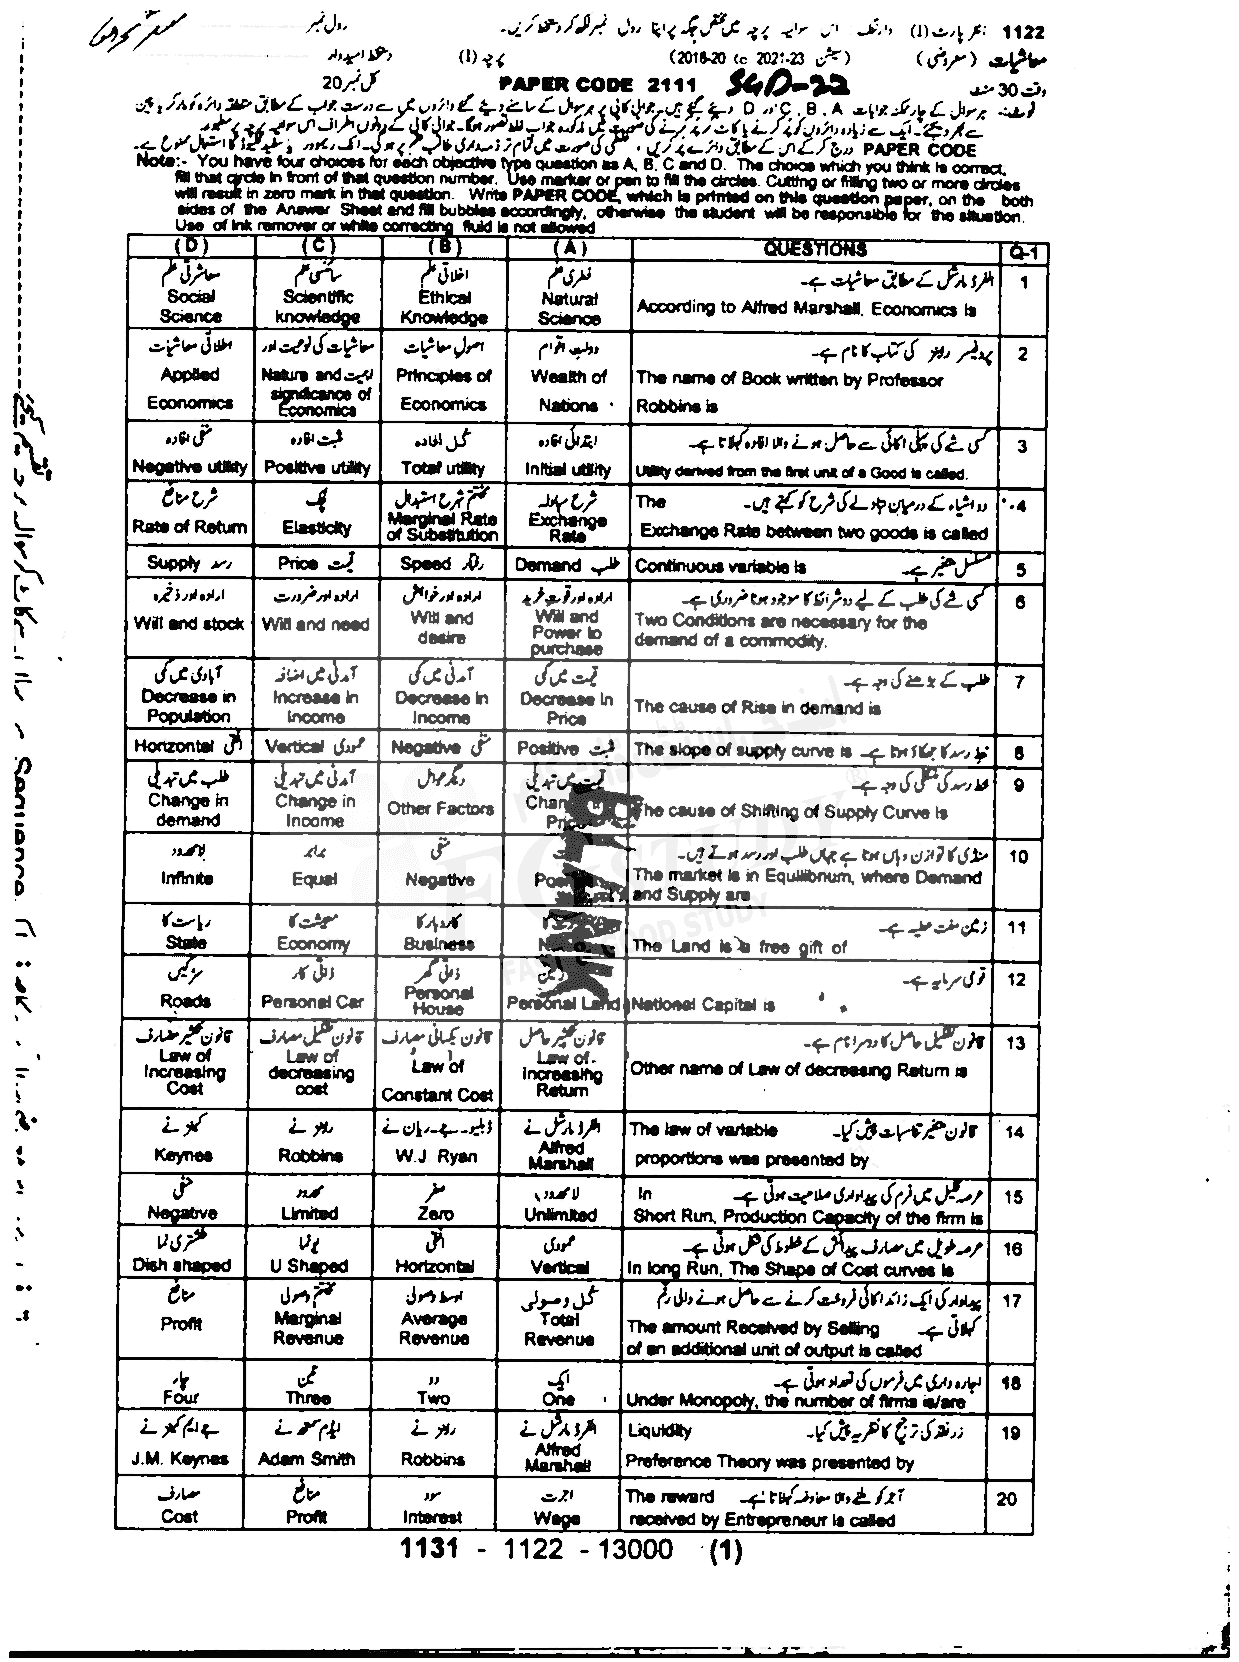 1122 انٹر پارٹ (I) وارننگ۔ اس سوالیہ پرچہ میں مختص جگہ پر اپنا رول نمبر لکھ کر دستخط کریں۔ رول نمبر
معاشیات (معروضی) (سیشن 2018-20 to 2021-23) پرچہ (I) دستخط امیدوار
وقت 30 منٹ PAPER CODE 2111 SGD-22 کل نمبر 20
نوٹ:- ہر سوال کے چار ممکنہ جوابات A ، B ، C اور D دیئے گئے ہیں۔ جوابی کاپی پر ہر سوال کے سامنے دیئے گئے دائروں میں سے درست جواب کے مطابق متعلقہ دائرہ کو مارکر یا پین
سے بھر دیجئے۔ ایک سے زیادہ دائروں کو پُر کرنے یا کاٹ کر پُر کرنے کی صورت میں مذکورہ جواب غلط تصور ہوگا۔ جوابی کاپی کے دونوں اطراف اس سوالیہ پرچہ پر مطبوعہ
PAPER CODE درج کر کے اس کے مطابق دائرے پُر کریں، غلطی کی صورت میں تمام تر ذمہ داری طالب علم پر ہوگی۔ انک ریموور یا سفید فلیوڈ کا استعمال ممنوع ہے۔
Note:- You have four choices for each objective type question as A, B, C and D. The choice which you think is correct,
fill that circle in front of that question number. Use marker or pen to fill the circles. Cutting or filling two or more circles
will result in zero mark in that question. Write PAPER CODE, which is printed on this question paper, on the both
sides of the Answer Sheet and fill bubbles accordingly, otherwise the student will be responsible for the situation.
Use of ink remover or white correcting fluid is not allowed
(D) (C) (B) (A) QUESTIONS Q-1
معاشرتی علم سائنسی علم اخلاقی علم فطری علم الفرڈ مارشل کے مطابق معاشیات ہے۔ 1
Social Science Scientific knowledge Ethical Knowledge Natural Science According to Alfred Marshall, Economics is
اطلاقی معاشیات معاشیات کی نوعیت اور اہمیت اصول معاشیات دولت اقوام پروفیسر روبنز کی کتاب کا نام ہے۔ 2
Applied Economics Nature and significance of Economics Principles of Economics Wealth of Nations The name of Book written by Professor Robbins is
منفی افادہ مثبت افادہ کل افادہ ابتدائی افادہ کسی شے کی پہلی اکائی سے حاصل ہونے والا افادہ کہلاتا ہے۔ 3
Negative utility Positive utility Total utility Initial utility Utility derived from the first unit of a Good is called.
شرح منافع لچک مختتم شرح استبدال شرح مبادلہ دو اشیاء کے درمیان تبادلے کی شرح کو کہتے ہیں۔ 4
Rate of Return Elasticity Marginal Rate of Substitution Exchange Rate The Exchange Rate between two goods is called
Supply رسد Price قیمت Speed رفتار Demand طلب Continuous variable is مسلسل متغیر ہے۔ 5
ارادہ اور ذخیرہ ارادہ اور ضرورت ارادہ اور خواہش ارادہ اور قوت خرید کسی شے کی طلب کے لیے دو شرائط کا موجود ہونا ضروری ہے۔ 6
Will and stock Will and need Will and desire Will and Power to purchase Two Conditions are necessary for the demand of a commodity.
آبادی میں کمی آمدنی میں اضافہ آمدنی میں کمی قیمت میں کمی طلب کے بڑھنے کی وجہ ہے۔ 7
Decrease in Population Increase in Income Decrease in Income Decrease in Price The cause of Rise in demand is
Horizontal افقی Vertical عمودی Negative منفی Positive مثبت The slope of supply curve is خط رسد کا جھکاؤ ہوتا ہے۔ 8
طلب میں تبدیلی آمدنی میں تبدیلی دیگر عوامل قیمت میں تبدیلی خط رسد کی منتقلی کی وجہ ہے۔ 9
Change in demand Change in Income Other Factors The cause of Shifting of Supply Curve is
لامحدود برابر منفی منڈی کا توازن وہاں ہوتا ہے جہاں طلب اور رسد ہوتے ہیں۔ 10
Infinite Equal Negative The market is in Equilibrium, where Demand and Supply are
ریاست کا معیشت کا کاروبار کا زمین مفت عطیہ ہے۔ 11
State Economy Business The Land is a free gift of
سڑکیں ذاتی کار ذاتی گھر زمین قومی سرمایہ ہے۔ 12
Roads Personal Car Personal House Personal Land National Capital is
قانون تکثیر مصارف قانون تقلیل مصارف قانون یکسانی مصارف قانون تکثیر حاصل قانون تقلیل حاصل کا دوسرا نام ہے۔ 13
Law of Increasing Cost Law of decreasing cost Law of Constant Cost Law of Increasing Return Other name of Law of decreasing Return is
کینز نے روبنز نے ڈبلیو۔جے۔ریان نے الفرڈ مارشل نے قانون متغیر تناسبات پیش کیا۔ 14
Keynes Robbins W.J Ryan Alfred Marshall The law of variable proportions was presented by
منفی محدود صفر لامحدود عرصہ قلیل میں فرم کی پیداواری صلاحیت ہوتی ہے۔ 15
Negative Limited Zero Unlimited In Short Run, Production Capacity of the firm is
طشتری نما یو نما افقی عمودی عرصہ طویل میں مصارف پیدائش کے خطوط کی شکل ہوتی ہے۔ 16
Dish shaped U Shaped Horizontal Vertical In long Run, The Shape of Cost curves is
منافع مختتم وصولی اوسط وصولی کل وصولی پیداوار کی ایک زائد اکائی فروخت کرنے سے حاصل ہونے والی رقم کہلاتی ہے۔ 17
Profit Marginal Revenue Average Revenue Total Revenue The amount Received by Selling of an additional unit of output is called
چار تین دو ایک اجارہ داری میں فرموں کی تعداد ہوتی ہے۔ 18
Four Three Two One Under Monopoly, the number of firms is/are
جے ایم کینز نے ایڈم سمتھ نے روبنز نے الفرڈ مارشل نے زر نقد کی ترجیح کا نظریہ پیش کیا۔ 19
J.M. Keynes Adam Smith Robbins Alfred Marshall Liquidity Preference Theory was presented by
مصارف منافع سود اجرت آجر کو ملنے والا معاوضہ کہلاتا ہے۔ 20
Cost Profit Interest Wage The reward received by Entrepreneur is called
1131 - 1122 - 13000 (1)